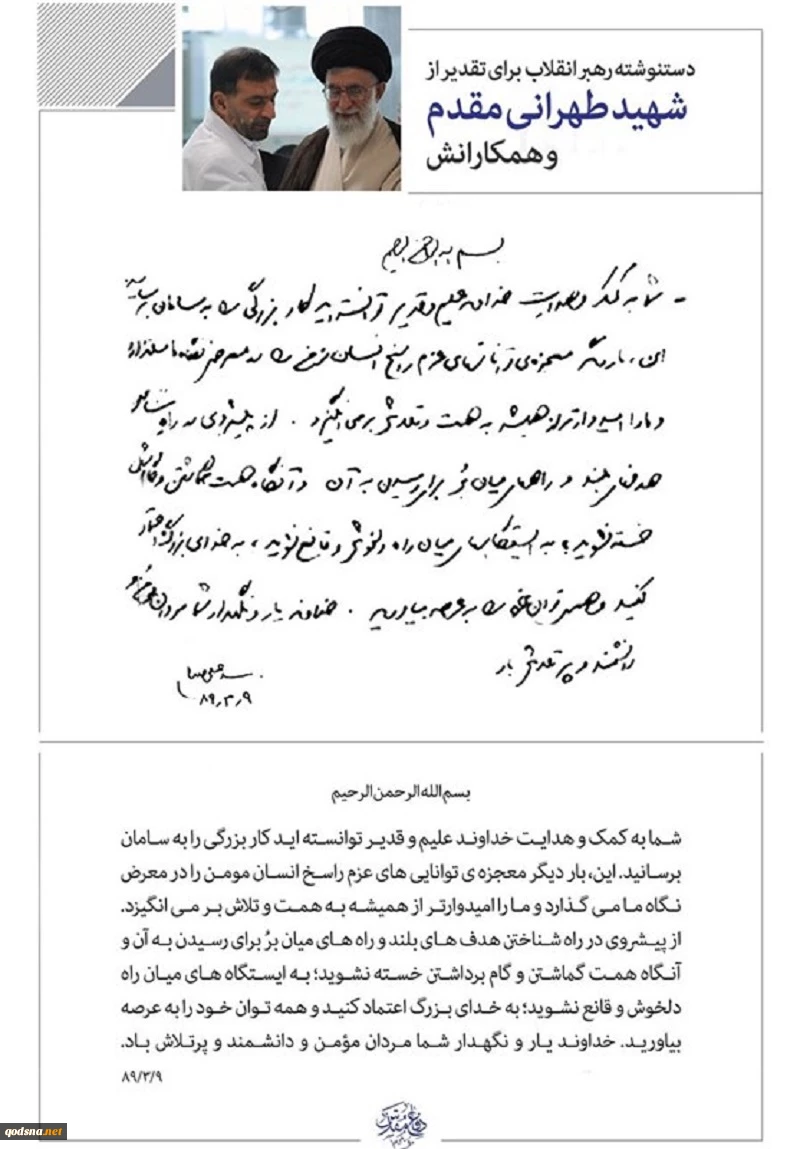 دستنوشته رهبر انقلاب برای تقدیر از
شهید طهرانی مقدم
و همکارانش
بسم الله الرحمن الرحیم
- شما به کمک و هدایت خداوند علیم و قدیر توانسته اید کار بزرگی را به سامان برسانید.
این، بار دیگر معجزه‌ی توانائیهای عزم راسخ انسان مؤمن را در معرض نگاه ما میگذارد
و ما را امیدوارتر از همیشه به همت و تلاش بر می انگیزد. از پیشروی در راه شناختن
هدفهای بلند و راههای میان بُر برای رسیدن به آن و آنگاه همت گماشتن و گام برداشتن
خسته نشوید؛ به ایستگاههای میان راه دلخوش و قانع نشوید، به خدای بزرگ اعتماد
کنید و همه‌ی توان خود را به عرصه بیاورید. خداوند یار و نگهدار شما مردان مؤمن و
دانشمند و پر تلاش باد
سید علی خامنه‌ای
۸۹٫۳٫۹
بسم الله الرحمن الرحیم
شما به کمک و هدایت خداوند علیم و قدیر توانسته اید کار بزرگی را به سامان
برسانید. این، بار دیگر معجزه ی توانایی های عزم راسخ انسان مومن را در معرض
نگاه ما می گذارد و ما را امیدوارتر از همیشه به همت و تلاش بر می انگیزد.
از پیشروی در راه شناختن هدف های بلند و راه های میان برُ برای رسیدن به آن و
آنگاه همت گماشتن و گام برداشتن خسته نشوید؛ به ایستگاه های میان راه
دلخوش و قانع نشوید؛ به خدای بزرگ اعتماد کنید و همه توان خود را به عرصه
بیاورید. خداوند یار و نگهدار شما مردان مؤمن و دانشمند و پرتلاش باد.
۸۹/۳/۹
دفاع مقدس
qodsna.net